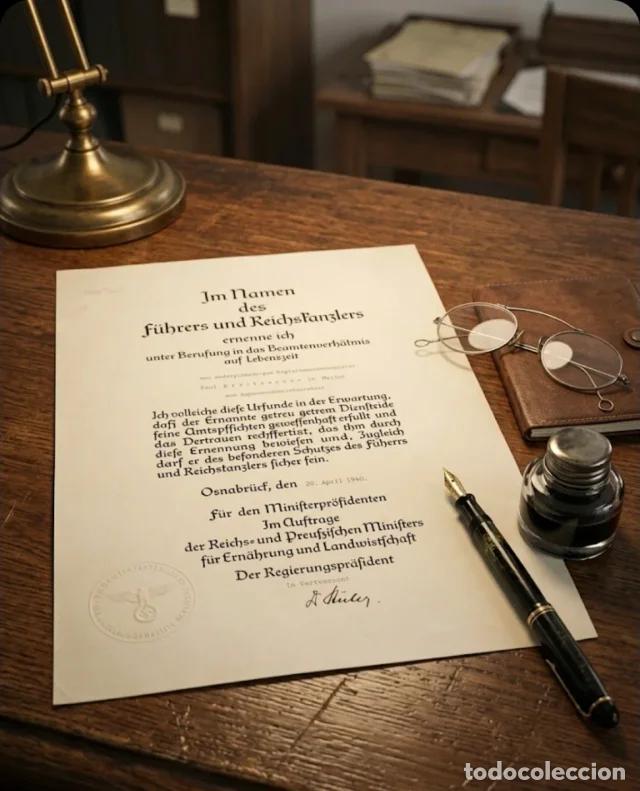 Im Namen
des
Führers und Reichskanzlers
ernenne ich
unter Berufung in das Beamtenverhältnis
auf Lebenszeit
Paul
in
Ich volleiche diese Urfunde in der Erwartung,
dafi der Ernannte getreu getrem Dienfteide
feine Amtspflichten geweffenhaft erfullt und
das Dertrauen rechffertist, das thm durch
diefe Ernennung bewiefen und, Zugleich
darf er des befonderen Schutzes des Führers
und Reichstanzlers ficher fein.
Osnabrück, den 20. April 1940.
Für den Minifterpröfidenten
Im Auftrage
der Reichs= und Preufzifchen Minifters
für Ernährung und Landwistfchaft
Der Regierungspräfident
In Vertretung
todocoleccion